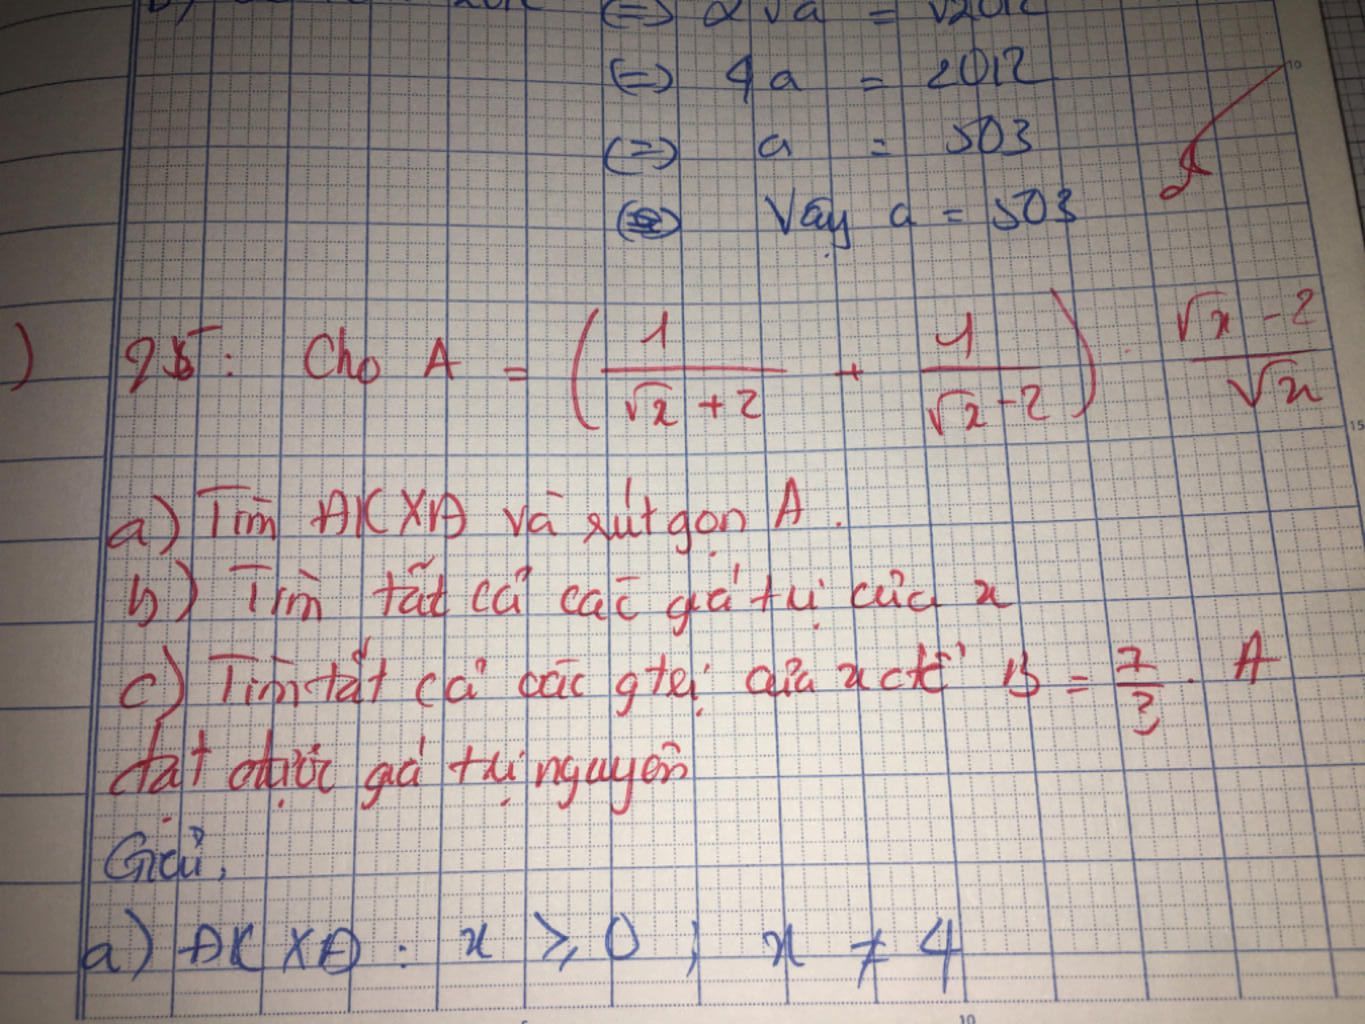 ⇔ 2√a = √2012
⇔ 4a = 2012
⇔ a = 503
Vậy a = 503
) 25: Cho A = (1/(√x + 2) + 1/(√x - 2)) . (√x - 2)/√x
a) Tìm ĐKXĐ và rút gọn A.
b) Tìm tất cả các giá trị của x
c) Tìm tất cả các gtrị của x để B = 7/3 . A
đạt được giá trị nguyên
Giải,
a) ĐKXĐ : x ≥ 0 ; x ≠ 4
10
15
5
10